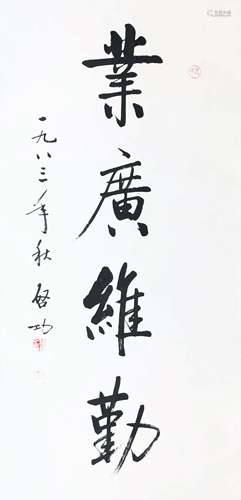 業廣維勤
一九八三年秋啓功